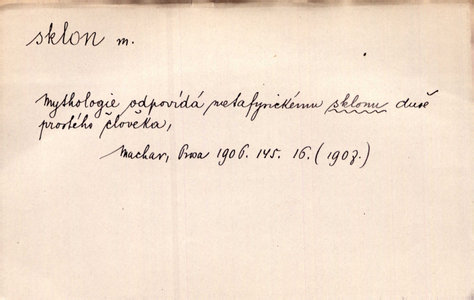 sklon m.
Mythologie odpovídá metafysickému sklonu duše
prostého člověka,
Machar, Prosa 1906. 145. 16. (1907.)